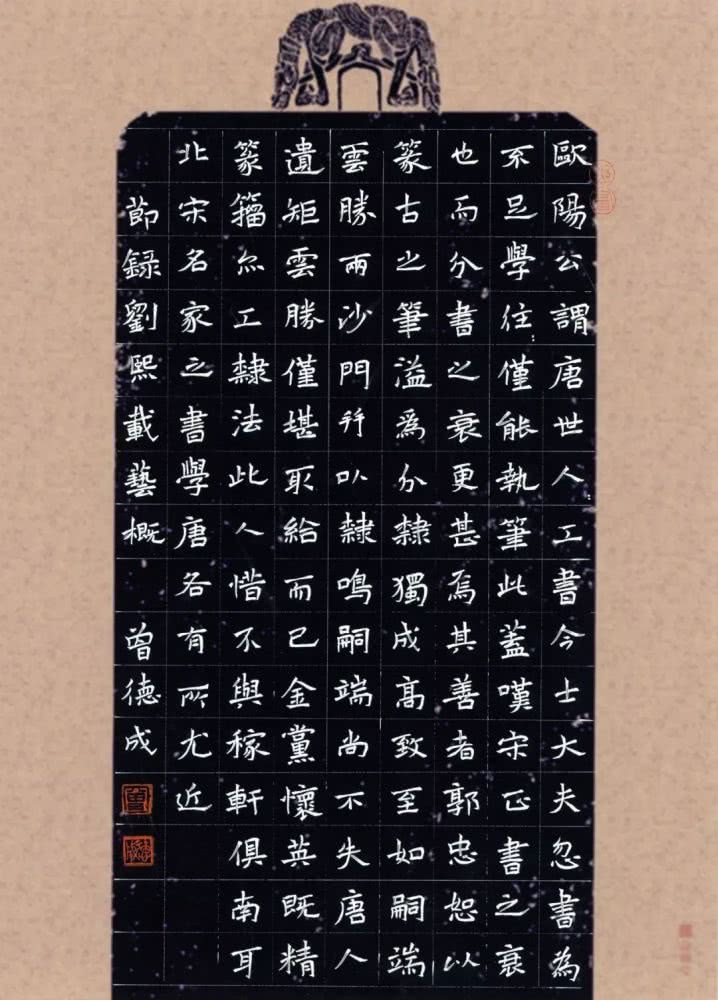 歐陽公謂唐世人〻工書今士大夫忽書為
不足學往〻僅能執筆此蓋嘆宋正書之衰
也而分書之衰更甚焉其善者郭忠恕以
篆古之筆溢為分隸獨成高致至如嗣端
雲勝兩沙門并以隸鳴嗣端尚不失唐人
遺矩雲勝僅堪取給而已金黨懷英既精
篆籀亦工隸法此人惜不與稼軒俱南耳
北宋名家之書學唐各有所尤近
節錄劉熙載藝概 曾德成